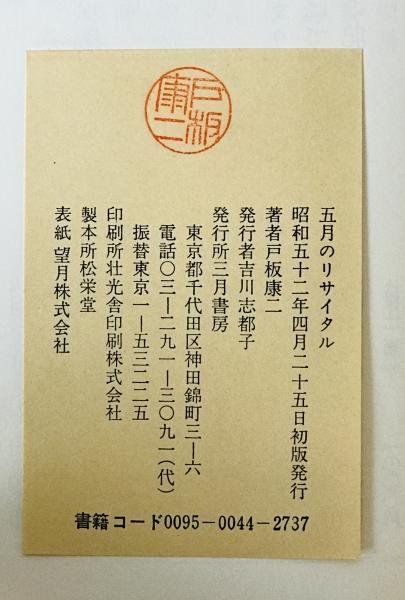 戸板康二
五月のリサイタル
昭和五十二年四月二十五日初版発行
著者戸板康二
発行者吉川志都子
発行所三月書房
東京都千代田区神田錦町三ー六
電話〇三ー二九一ー三〇九一(代)
振替東京一ー五三二二五
印刷所壮光舎印刷株式会社
製本所松栄堂
表紙 望月株式会社
書籍コード0095-0044-2737